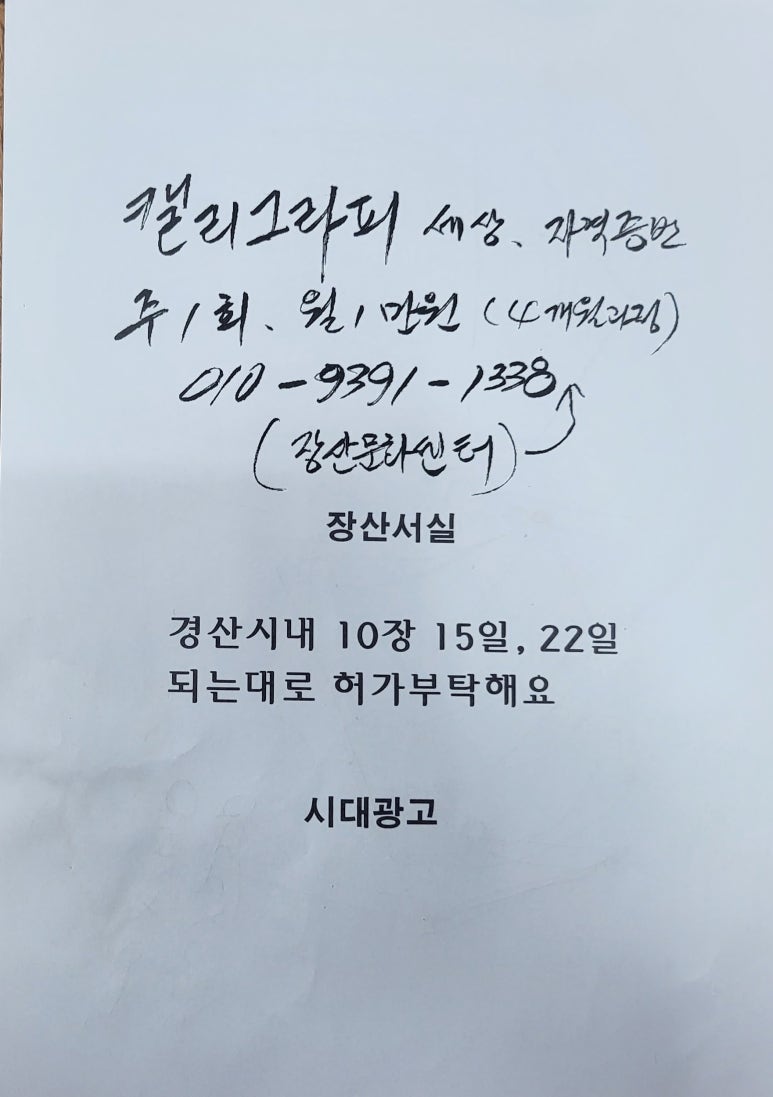 캘리그라피 세상、 자격증반
주 1회、 월 1만원 (4개월과정)
010-9391-1338
(장산문화센터)
장산서실
경산시내 10장 15일, 22일
되는대로 허가부탁해요
시대광고